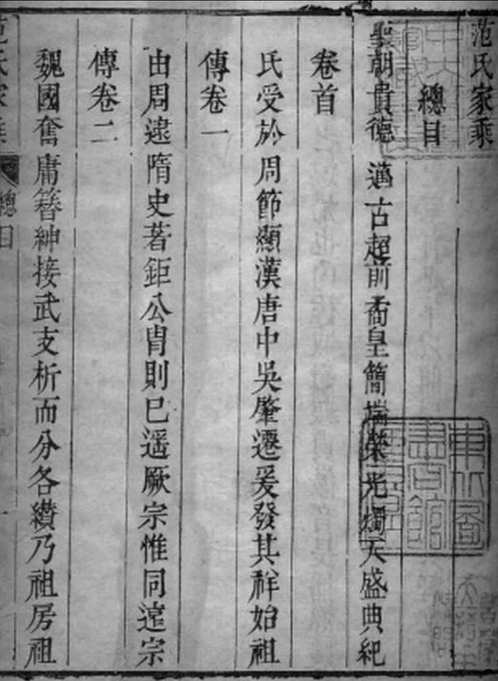 范氏家乘
總目
聖朝貴德邁古超前矞皇簡端榮光燭天盛典紀
卷首
氏受於周節顯漢唐中吳肇遷爰發其祥始祖
傳卷一
由周逮隋史著鉅公胄則已遥厥宗惟同遠宗
傳卷二
魏國奮庸簮紳接武支析而分各纘乃祖房祖
范氏家乘
總目